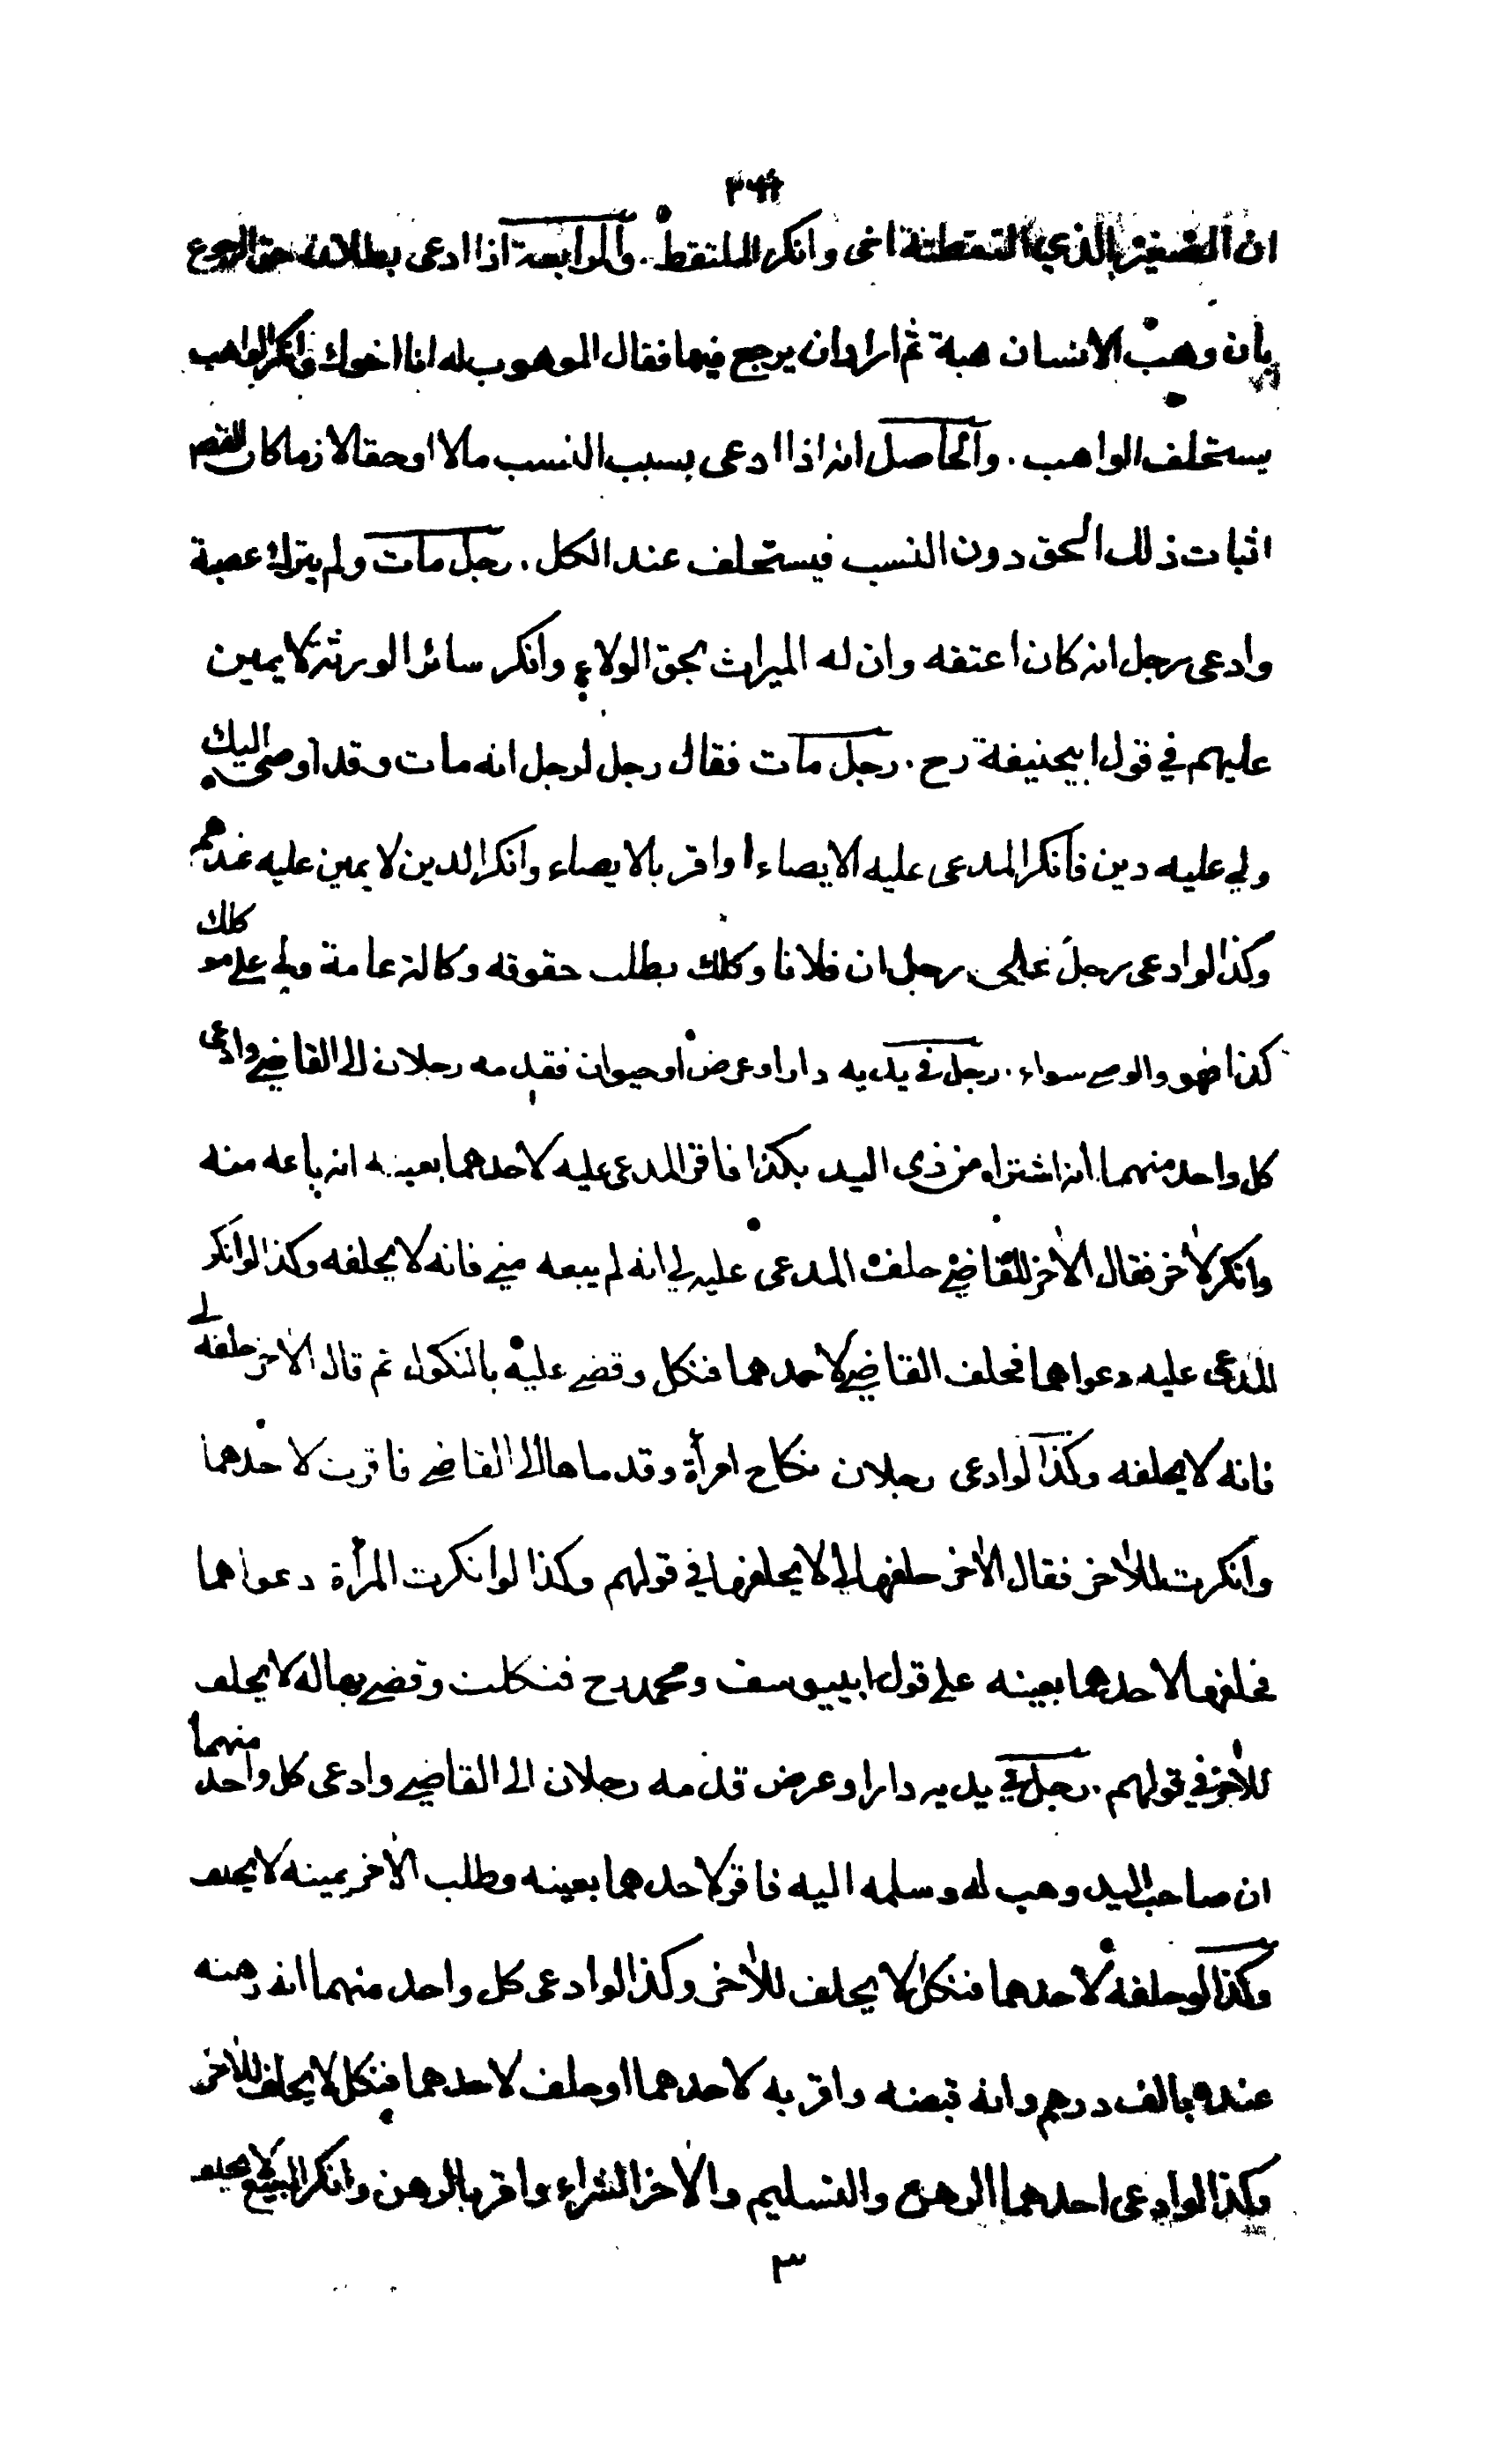 ان الصغير الذي التقطتة اخى وانكر الملتقط . والرابعة اذا ادعى بطلان حق الرجوع
بأن وهب الانسان هبة ثم اراد ان يرجع فيها فقال الموهوب له انا اخوك وانكر الواهب
يستحلف الواهب . والحاصل انه اذا ادعى بسبب النسب مالا او حقا لازما كان القصد
اثبات ذلك الحق دون النسب فيستحلف عند الكل . رجل مات ولم يترك عصبة
وادعى رجل انه كان اعتقه وان له الميراث بحق الولاء وانكر سائر الورثة لا يمين
عليهم في قول ابيحنيفة رح . رجل مات فقال رجل لرجل انه مات وقد اوصى اليك
ولي عليه دين فأنكر المدعى عليه الايصاء او اقر بالايصاء وانكر الدين لا يمين عليه عندهم
وكذا لو ادعى رجل على رجل ان فلانا وكلك بطلب حقوقه وكالة عامة ولي على موكلك
كذا فهو والوصي سواء . رجل في يديه دار او عرض او حيوان فقدمه رجلان الى القاضي وادعى
كل واحد منهما انه اشتراه من ذى اليد بكذا فاقر المدعى عليه لاحدهما بعينه انه باعه منه
وانكر لأخر فقال الأخر للقاضي حلف المدعى عليه لي انه لم يبعه مني فانه لا يحلفه وكذا لو انكر
المدعى عليه دعواهما فحلف القاضي لاحدهما فنكل وقضى عليه بالنكول ثم قال الأخر حلفه لي
فانه لا يحلفه وكذا لو ادعى رجلان نكاح امرأة وقدماها الى القاضي فاقرت لاحدهما
وانكرت للأخر فقال الأخر حلفها لي لا يحلفها في قولهم وكذا لو انكرت المرأة دعواهما
فحلفها لاحدهما بعينه على قول ابييوسف ومحمد رح فنكلت وقضى بها له لا يحلف
للأخر في قولهم . رجل في يديه دار او عرض قدمه رجلان الى القاضي وادعى كل واحد منهما
ان صاحب اليد وهب له وسلمه اليه فاقر لاحدهما بعينه وطلب الأخر يمينه لا يحلف
وكذا لو حلفه لاحدهما فنكل لا يحلف للأخر وكذا لو ادعى كل واحد منهما انه رهنه
عنده بالف درهم وانه قبضه واقر به لاحدهما او حلف لاحدهما فنكل لا يحلف للأخر
وكذا لو ادعى احدهما الرهن والتسليم والأخر الشراء واقر بالرهن وانكر البيع لا يحلف
٣